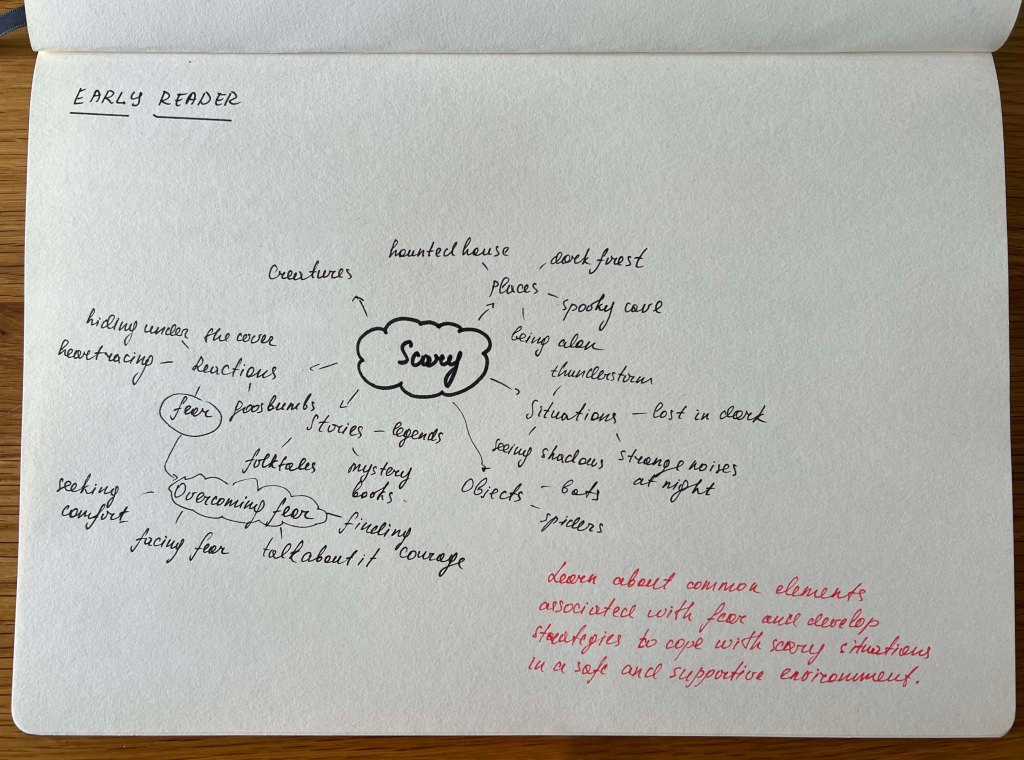 EARLY READER
haunted house
dark forest
Creatures
Places
spooky cave
being alon
hiding under the cover
heart racing
Reactions
Scary
thunderstorm
fear
goosbumbs
Situations
lost in dark
Stories
legends
seeing shadows
strange noises
at night
folktales
mystery
books
Objects
bats
spiders
seeking
comfort
Overcoming fear
finding
courage
facing fear
talk about it
Learn about common elements
associated with fear and develop
strategies to cope with scary situations
in a safe and supportive environment.